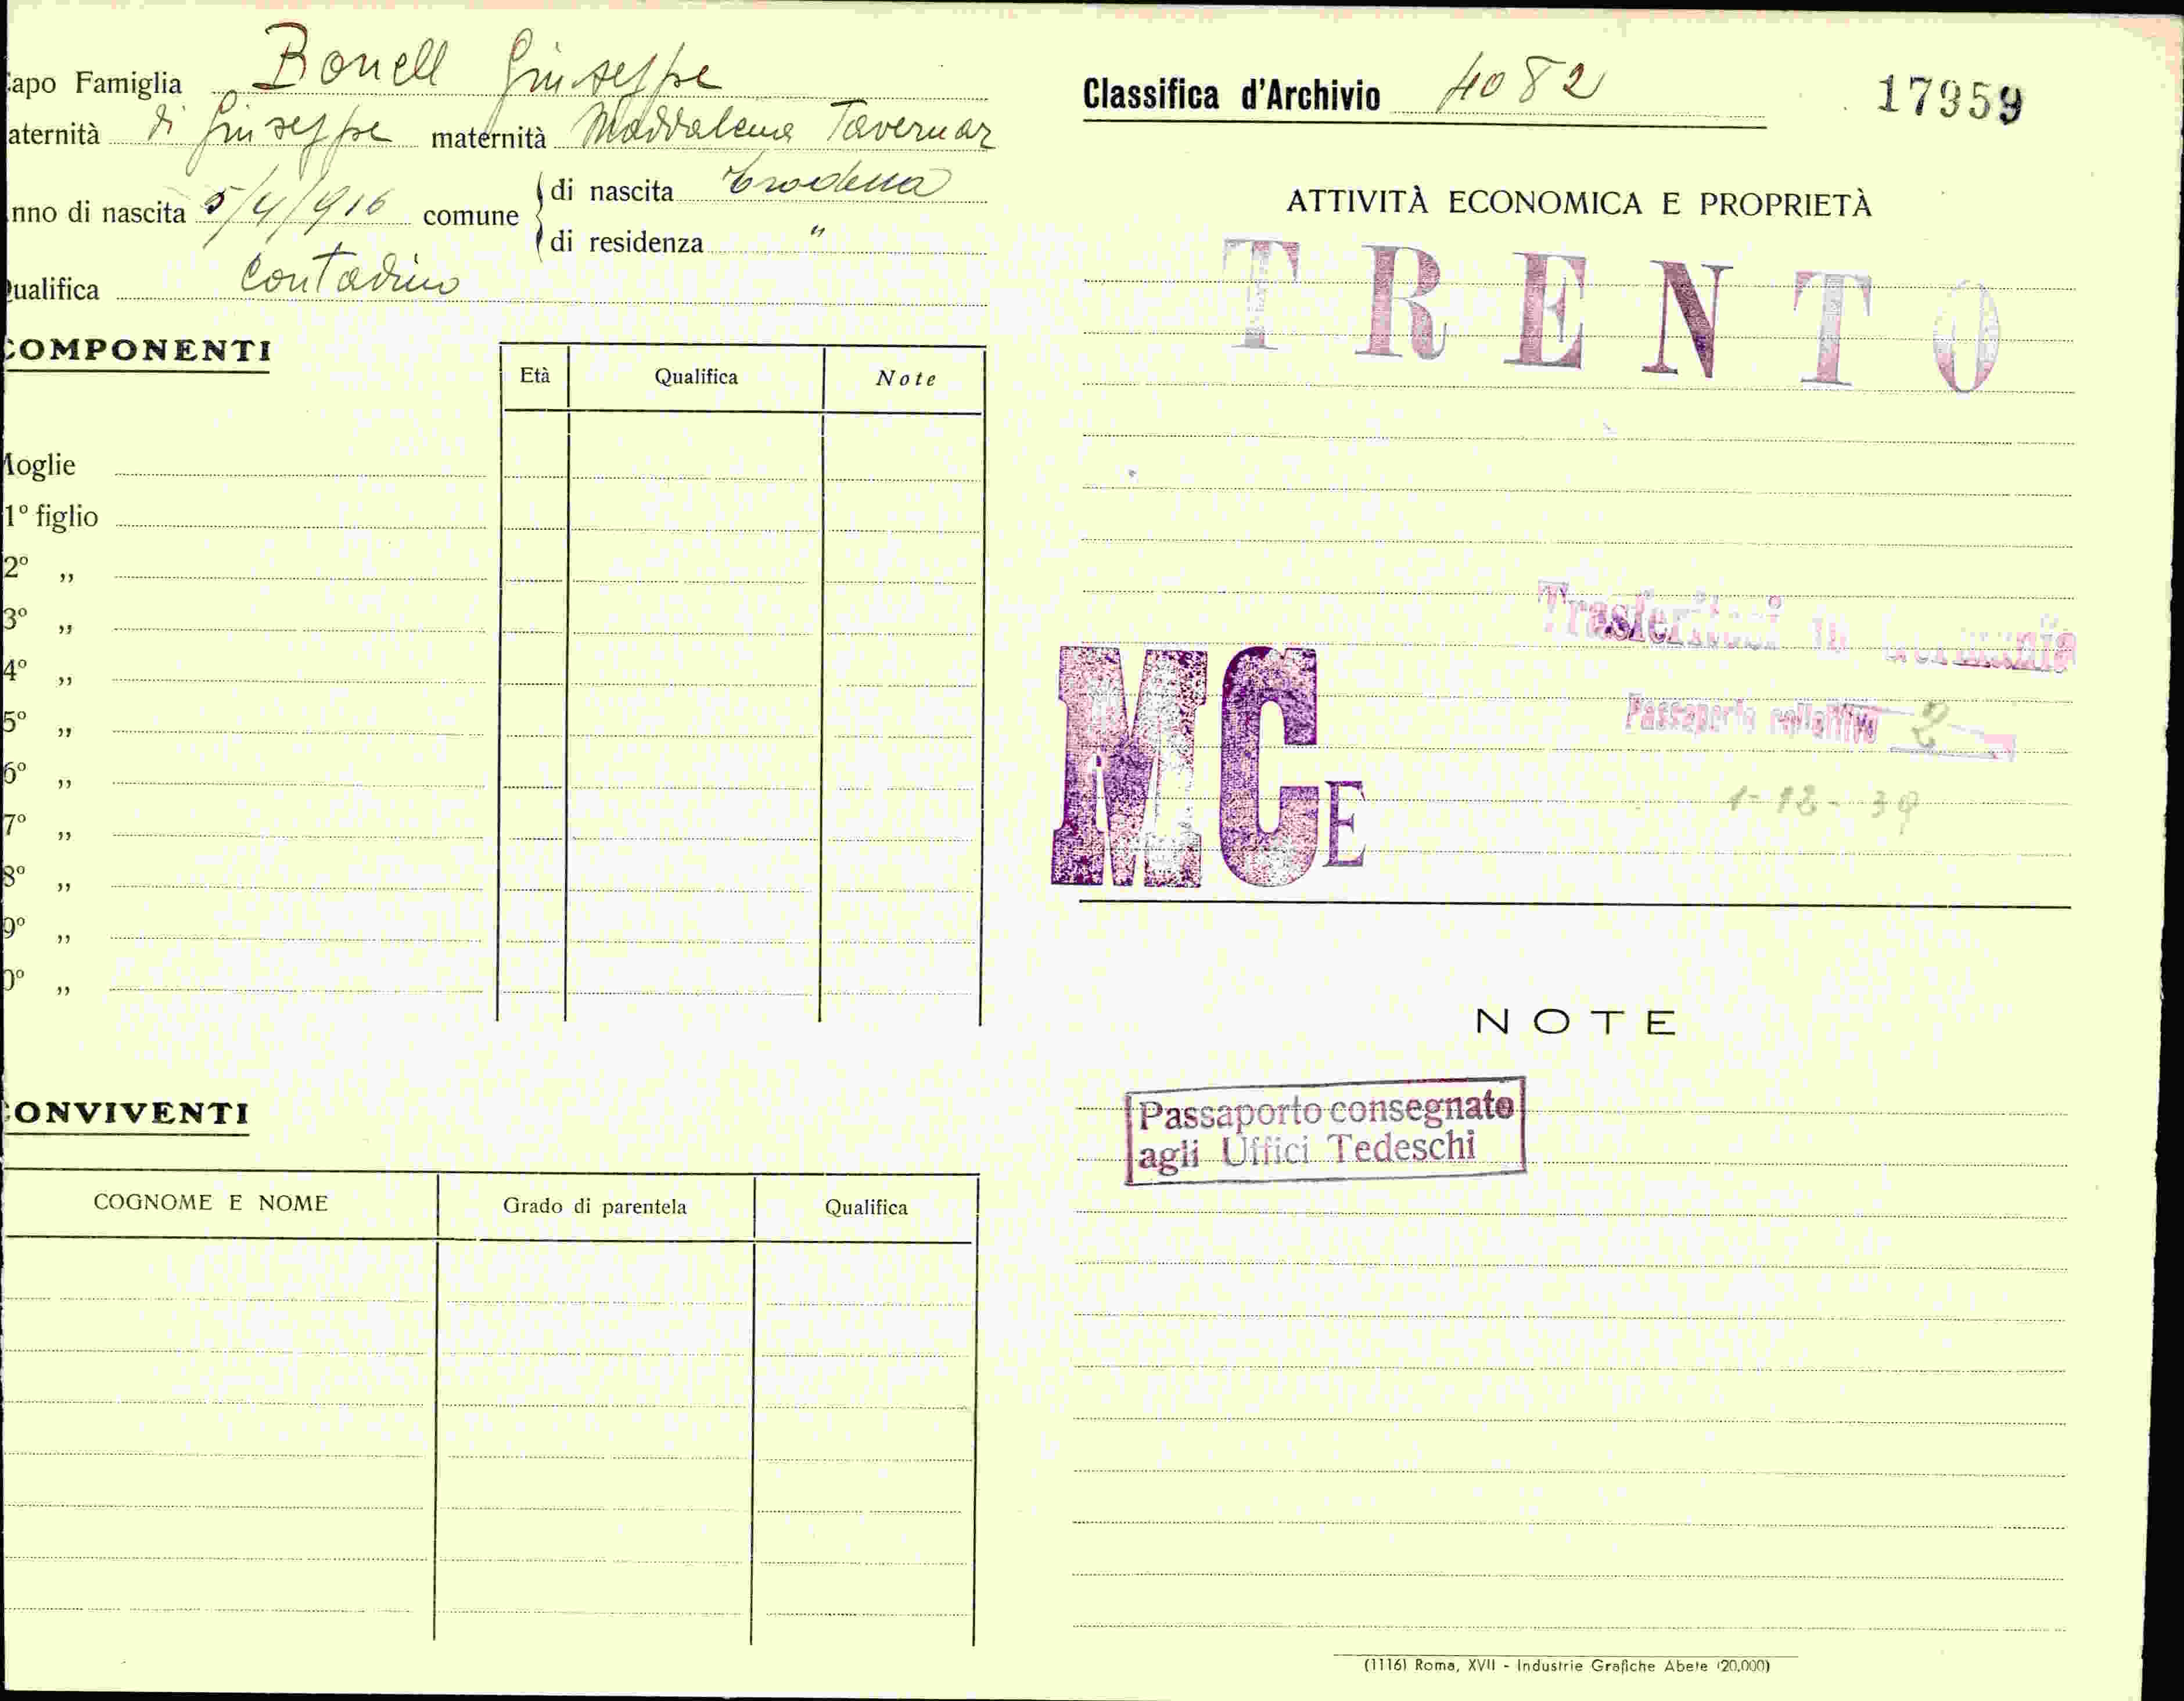 apo Famiglia Bonell Giuseppe
aternità di Giuseppe maternità Maddalena Tavernar
nno di nascita 5/4/916 comune di nascita Trodena
di residenza "
ualifica Contadino
COMPONENTI
Età Qualifica Note
Moglie
1º figlio
2º ,,
3º ,,
4º ,,
5º ,,
6º ,,
7º ,,
8º ,,
9º ,,
0º ,,
CONVIVENTI
COGNOME E NOME Grado di parentela Qualifica
Classifica d'Archivio 4082 17959
ATTIVITÀ ECONOMICA E PROPRIETÀ
TRENTO
Trasferitosi in Germania
Passaporto collettivo 2
MCE
1-12-39
NOTE
Passaporto consegnato
agli Uffici Tedeschi
(1116) Roma, XVII - Industrie Grafiche Abete (20.000)